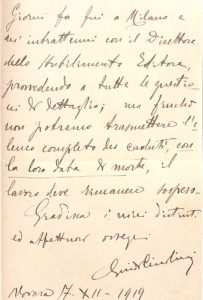 Giorni fa fui a Milano e
mi intrattenni con il Direttore
dello Stabilimento Editore,
provvedendo a tutte le questio-
ni di dettaglio; ma finché
non potremo trasmettere l'e-
lenco completo dei caduti, con
la loro data di morte, il
lavoro deve rimanere sospeso.
Gradisca i miei distinti
ed affettuosi ossequi
Novara 17-XII-1919